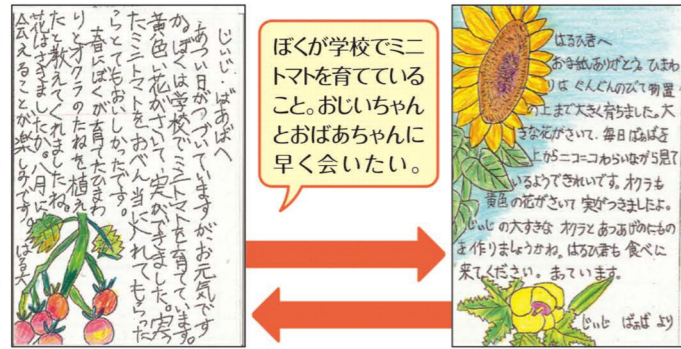 じぃじ・ばぁばへ
あつい日がつづいていますが、お元気です
か。ぼくは学校でミニトマトを育てています。
黄色い花がさいて、実ができました。実っ
たミニトマトをおべん当に入れてもらった
らとてもおいしかったです。
春にぼくが育てたひまわ
りとオクラのたねを植え
たと教えてくれましたね。
花はさきましたか。八月に
会えることが楽しみです。
ぼくが学校でミニ
トマトを育てている
こと。おじいちゃん
とおばあちゃんに
早く会いたい。
お手紙ありがとう。ひまわ
りは ぐんぐんのびて物置
の上まで大きく育ちました。大
きな花がさいて、毎日ばぁばを
上からニコニコわらいながら見て
いるようできれいです。オクラも
黄色の花がさいて 実がつきましたよ。
じぃじの大すきな オクラとあつあげのにもの
を作りましょうかね。も食べに
来てください。まっています。
じぃじ ばぁば より